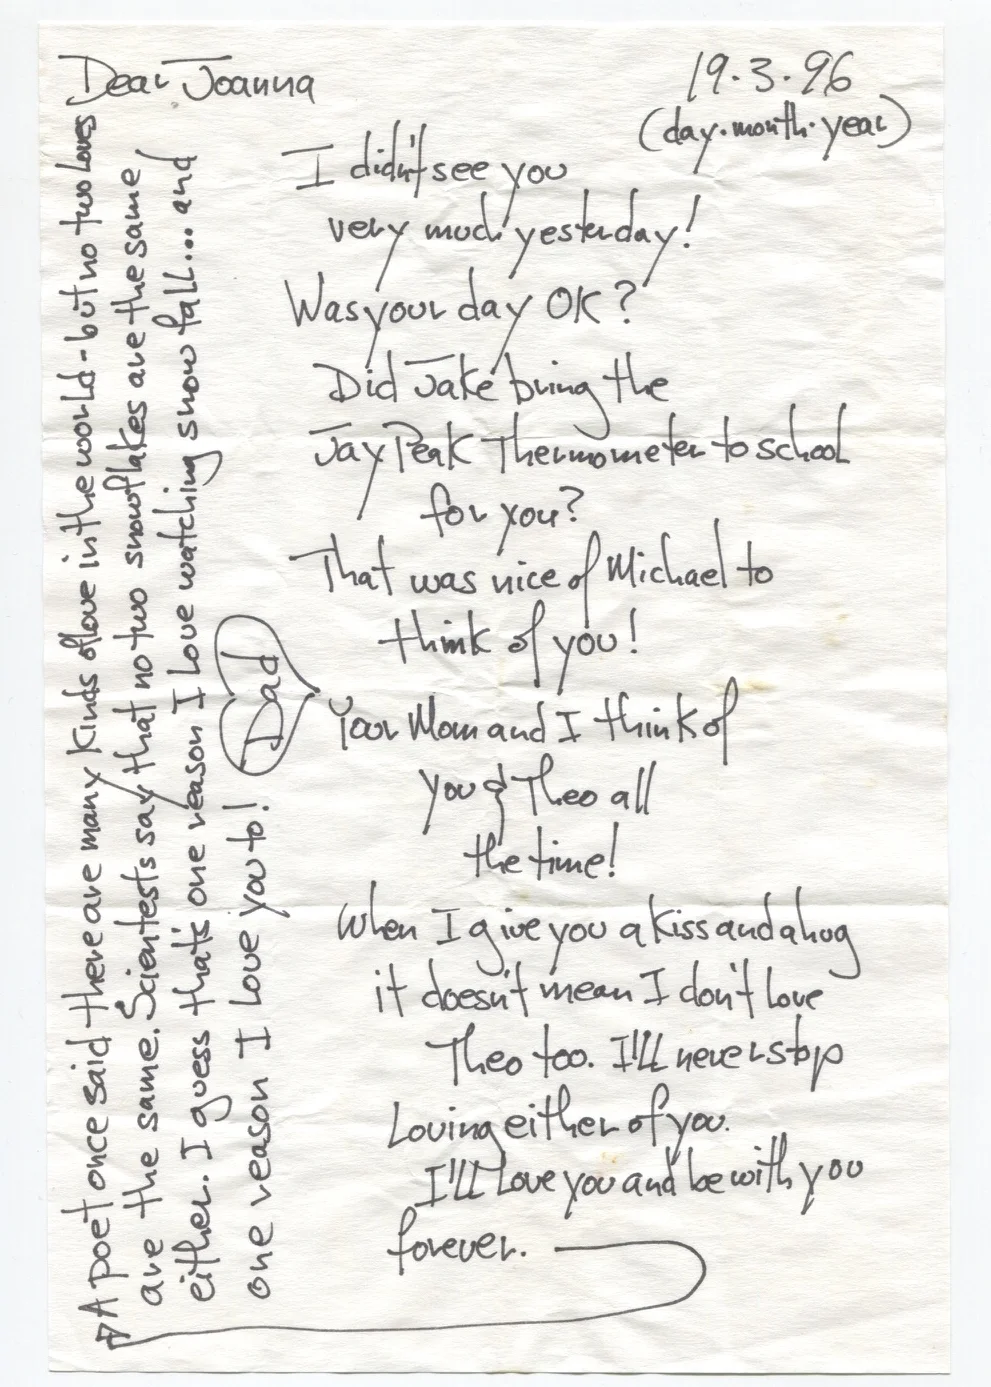 Dear Joanna
19.3.96
(day.month.year)
I didn't see you
very much yesterday!
Was your day OK?
Did Jake bring the
Jay Peak Thermometer to school
for you?
That was nice of Michael to
think of you!
Your Mom and I think of
you & Theo all
the time!
When I give you a kiss and a hug
it doesn't mean I don't love
Theo too. I'll never stop
Loving either of you.
I'll Love you and be with you
forever.
A poet once said there are many kinds of love in the world - but no two loves
are the same. Scientests say that no two snowflakes are the same
either. I guess that's one reason I Love watching snow fall... and
one reason I Love you to!
Dad